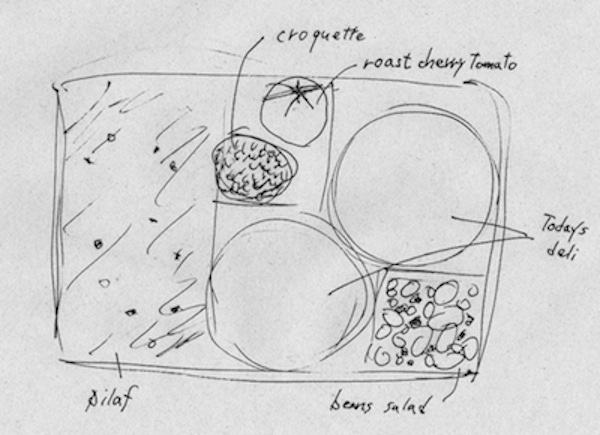 croquette
roast cherry tomato
Today's
deli
pilaf
beans salad